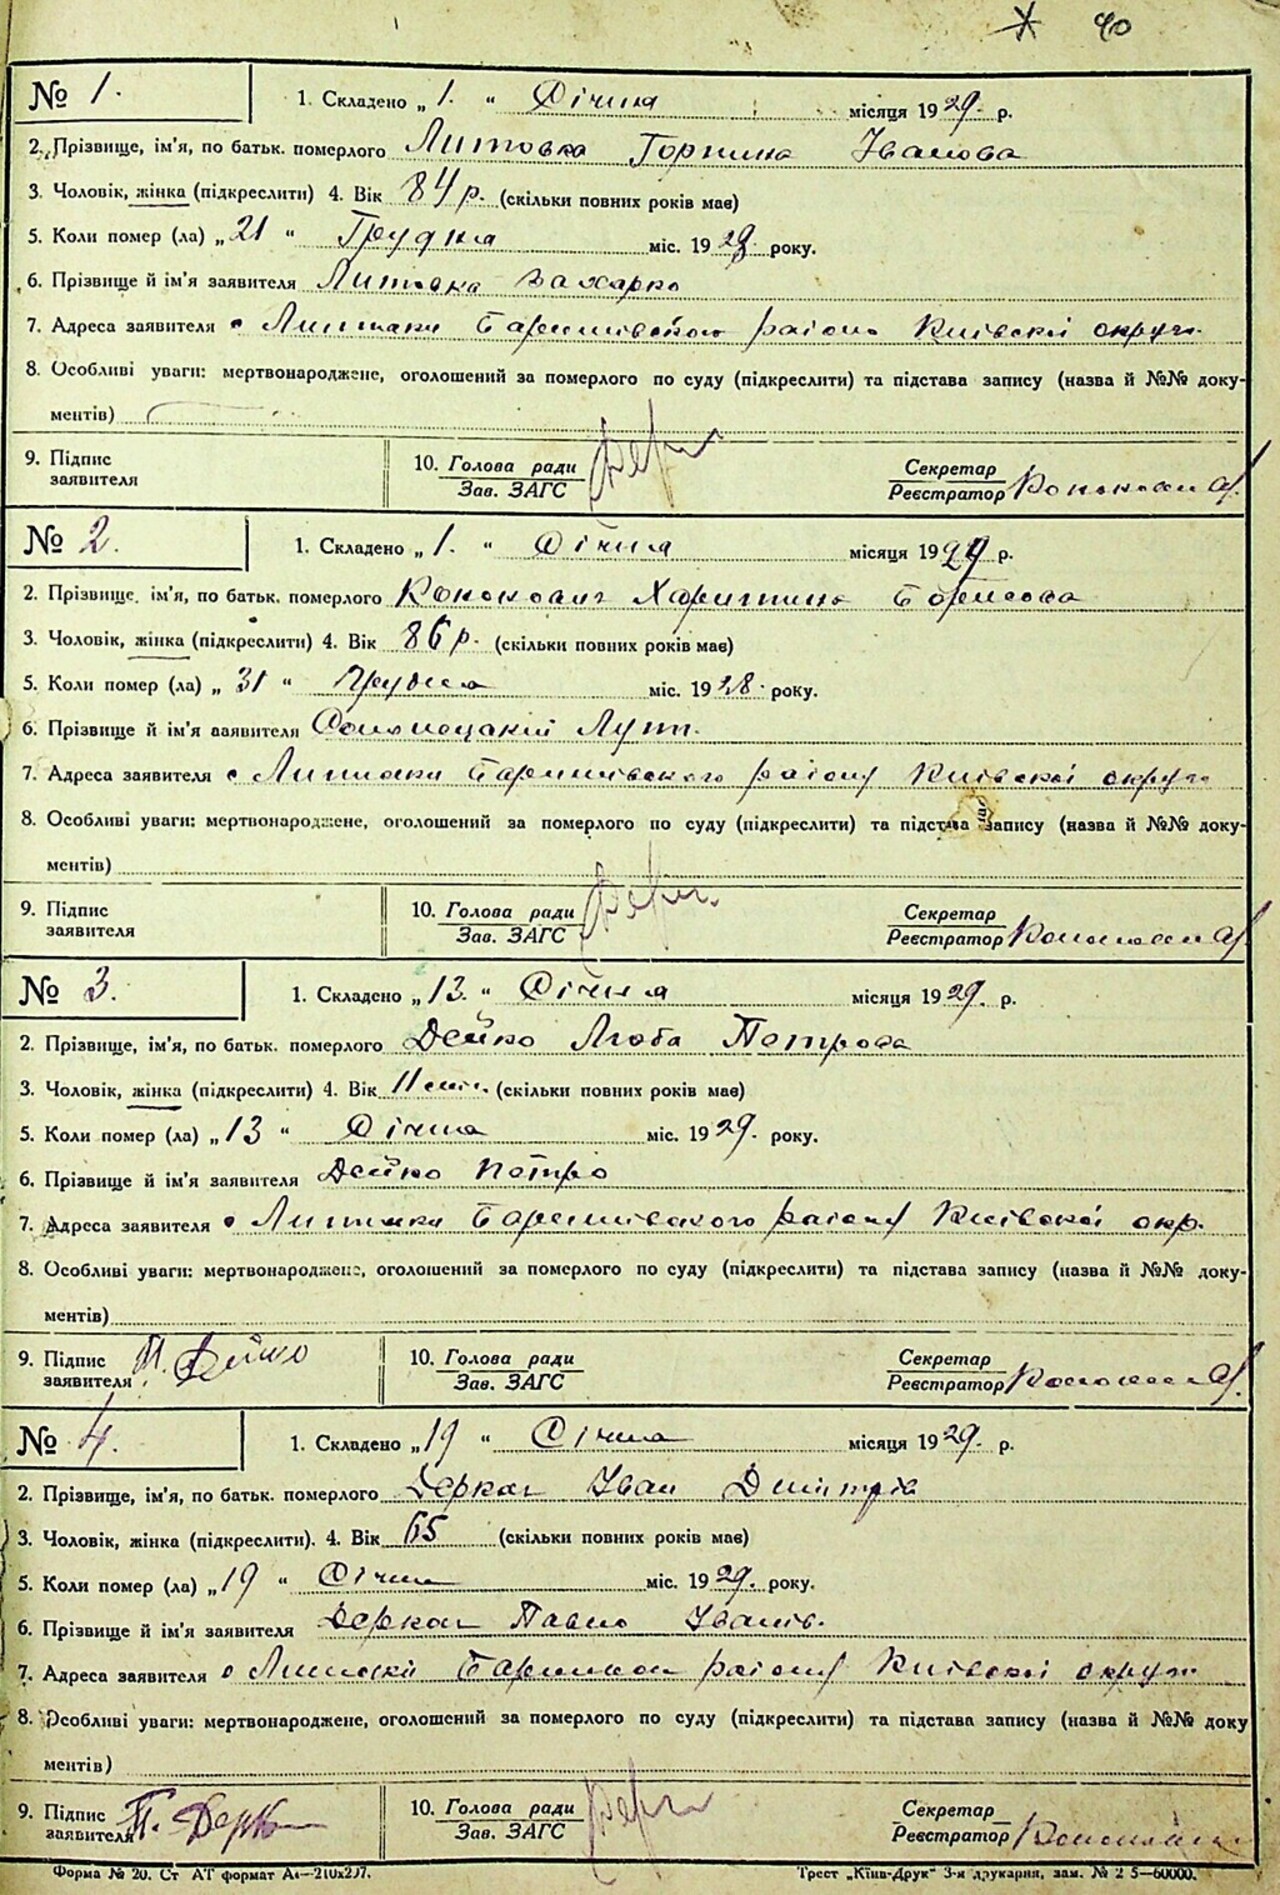 40
№ 1. 1. Складено „1.“ Січня місяця 1929. р.
2. Прізвище, ім'я, по батьк. померлого Литовка Горпина Іванова
3. Чоловік, жінка (підкреслити) 4. Вік 84 р. (скільки повних років має)
5. Коли помер (ла) „21“ Грудня міс. 1928. року.
6. Прізвище й ім'я заявителя Литовка Захарко
7. Адреса заявителя с. Липняки Баришівського району Київської округи
8. Особливі уваги: мертвонароджене, оголошений за померлого по суду (підкреслити) та підстава запису (назва й №№ доку-
ментів)
9. Підпис 10. Голова ради Секретар
заявителя Зав. ЗАГС Реєстратор
№ 2. 1. Складено „1.“ Січня місяця 1929 р.
2. Прізвище, ім'я, по батьк. померлого Харитина Борисова
3. Чоловік, жінка (підкреслити) 4. Вік 86 р. (скільки повних років має)
5. Коли помер (ла) „31“ Грудня міс. 1928. року.
6. Прізвище й ім'я заявителя
7. Адреса заявителя с. Липняки Баришівського району Київської округи
8. Особливі уваги: мертвонароджене, оголошений за померлого по суду (підкреслити) та підстава запису (назва й №№ доку-
ментів)
9. Підпис 10. Голова ради Секретар
заявителя Зав. ЗАГС Реєстратор
№ 3. 1. Складено „13.“ Січня місяця 1929. р.
2. Прізвище, ім'я, по батьк. померлого Дейко Люба Петрова
3. Чоловік, жінка (підкреслити) 4. Вік 11 (скільки повних років має)
5. Коли помер (ла) „13“ Січня міс. 1929. року.
6. Прізвище й ім'я заявителя Дейко Петро
7. Адреса заявителя с. Липняки Баришівського району Київської окр.
8. Особливі уваги: мертвонароджене, оголошений за померлого по суду (підкреслити) та підстава запису (назва й №№ доку-
ментів)
9. Підпис П. Дейко 10. Голова ради Секретар
заявителя Зав. ЗАГС Реєстратор
№ 4. 1. Складено „19“ Січня місяця 1929. р.
2. Прізвище, ім'я, по батьк. померлого Деркач Іван Дмитрів
3. Чоловік, жінка (підкреслити). 4. Вік 65 (скільки повних років має)
5. Коли помер (ла) „19“ Січня міс. 1929. року.
6. Прізвище й ім'я заявителя Деркач Павло Іванів.
7. Адреса заявителя с Липняки району Київської округи
8. Особливі уваги: мертвонароджене, оголошений за померлого по суду (підкреслити) та підстава запису (назва й №№ доку
ментів)
9. Підпис П. Деркач 10. Голова ради Секретар
заявителя Зав. ЗАГС Реєстратор
Форма № 20. Ст АТ формат А4—210х297. Трест „Київ-Друк“ 3-я друкарня, зам. № 2 5—60000.